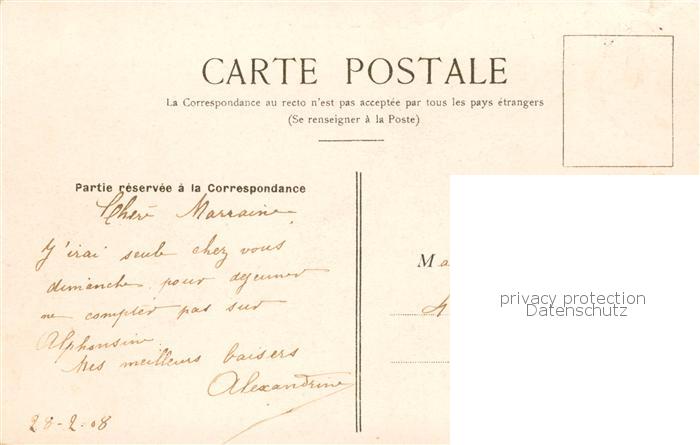 CARTE POSTALE
La Correspondance au recto n'est pas acceptée par tous les pays étrangers
(Se renseigner à la Poste)
Partie réservée à la Correspondance
Chère Marraine
J'irai seule chez vous
dimanche pour dejeuner
ne compter pas sur
Alphonsine
Mes meilleurs baisers
Alexandrine
28-2-08
Ma
privacy protection
Datenschutz